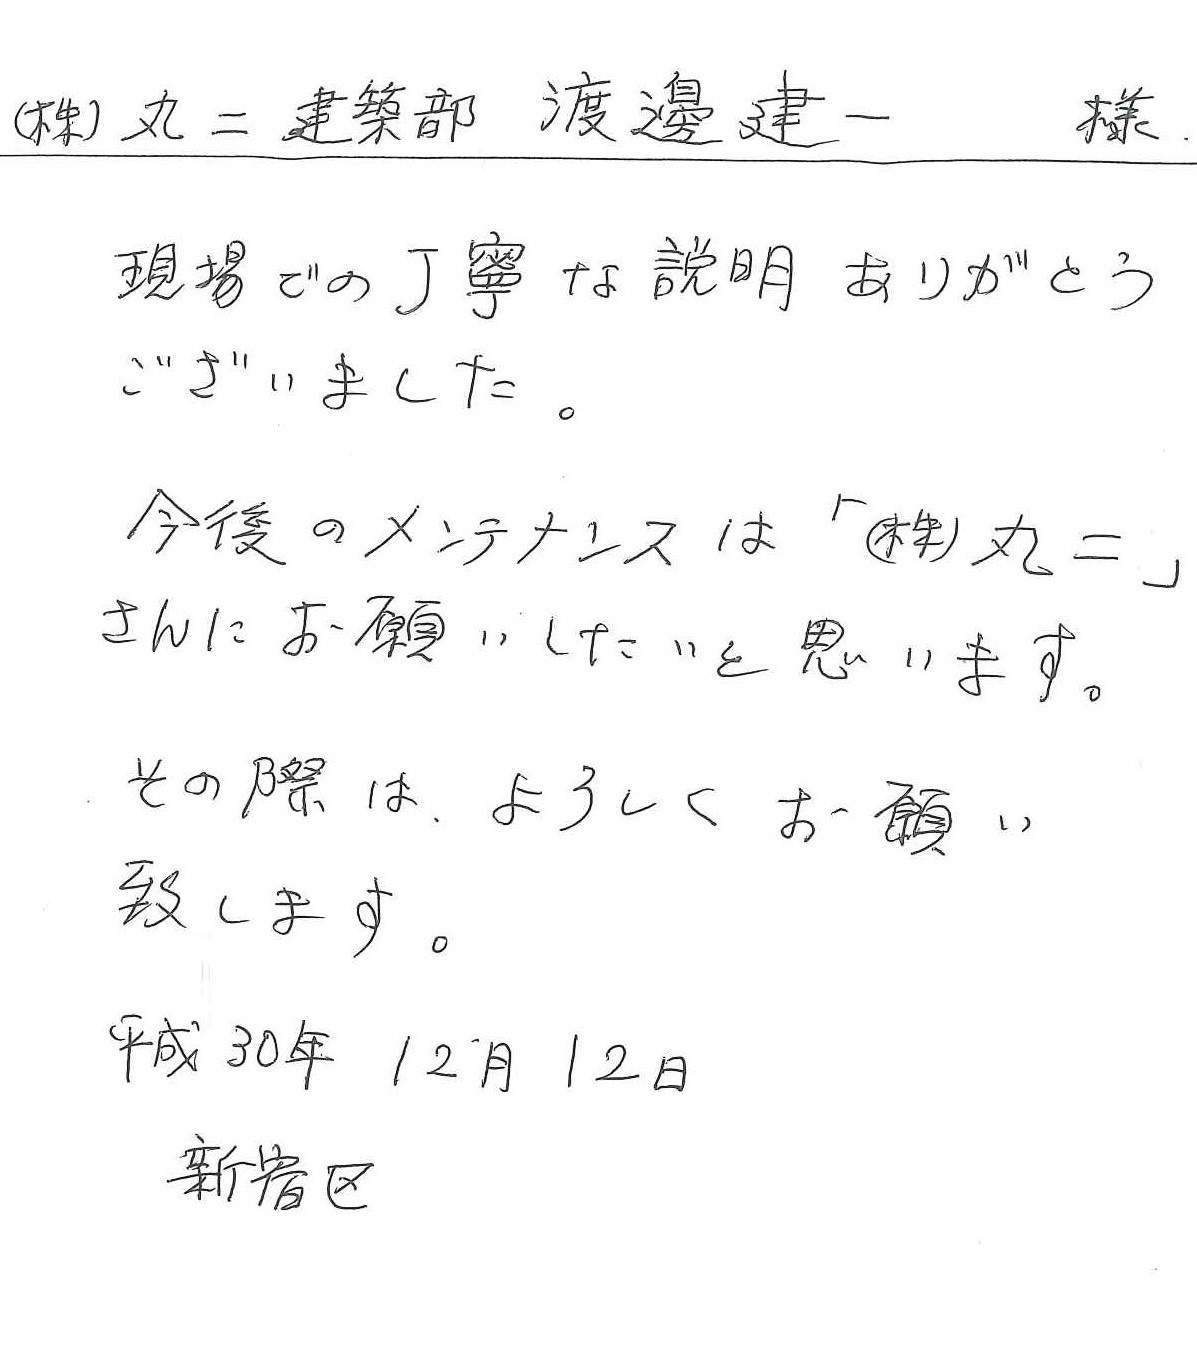 (株)丸二 建築部 渡邊建一 様
現場での丁寧な説明ありがとう
ございました。
今後のメンテナンスは「(株)丸二」
さんにお願いしたいと思います。
その際は、よろしくお願い
致します。
平成30年 12月12日
新宿区